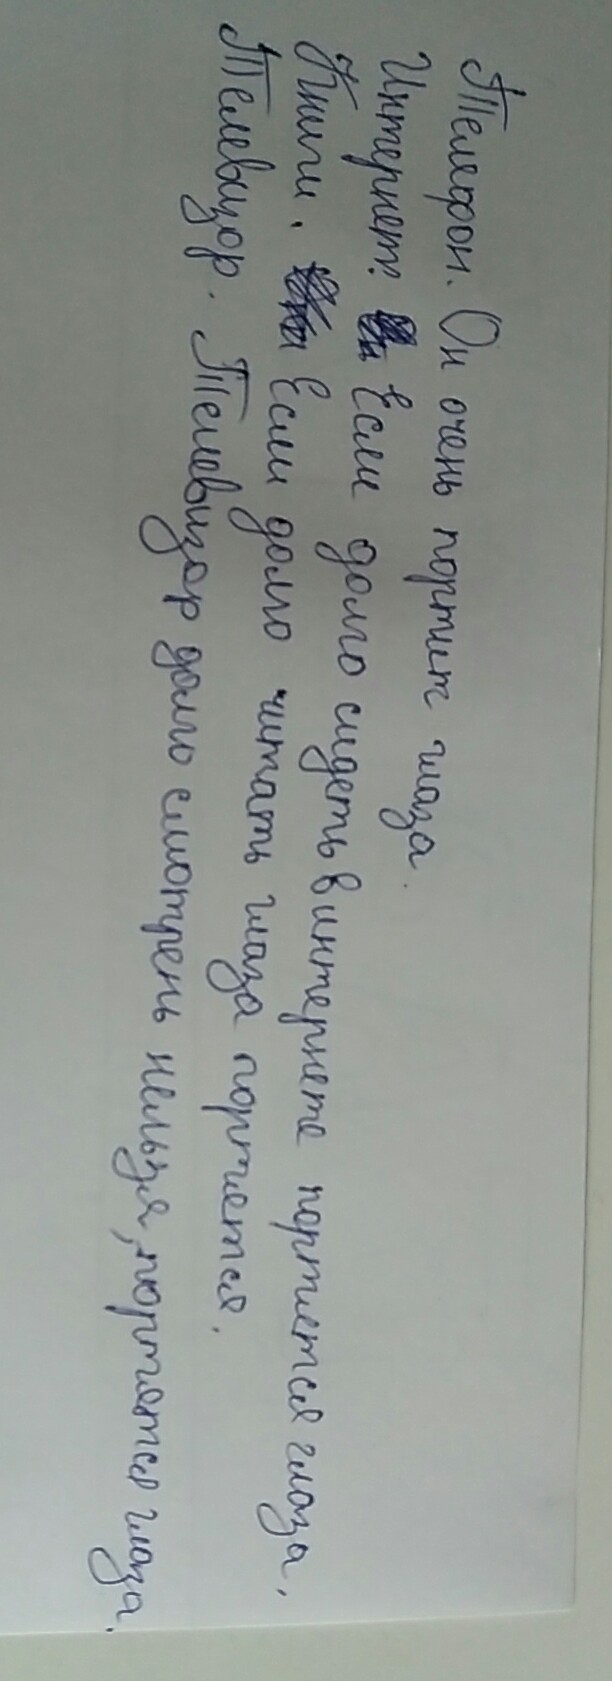 Телефон. Он очень портит глаза.
Интернет. Если долго сидеть в интернете портиется глаза.
Книги. Если долго читать глаза портиется.
Телевизор. Телевизор долго смотрень нельзя, портятся глаза.